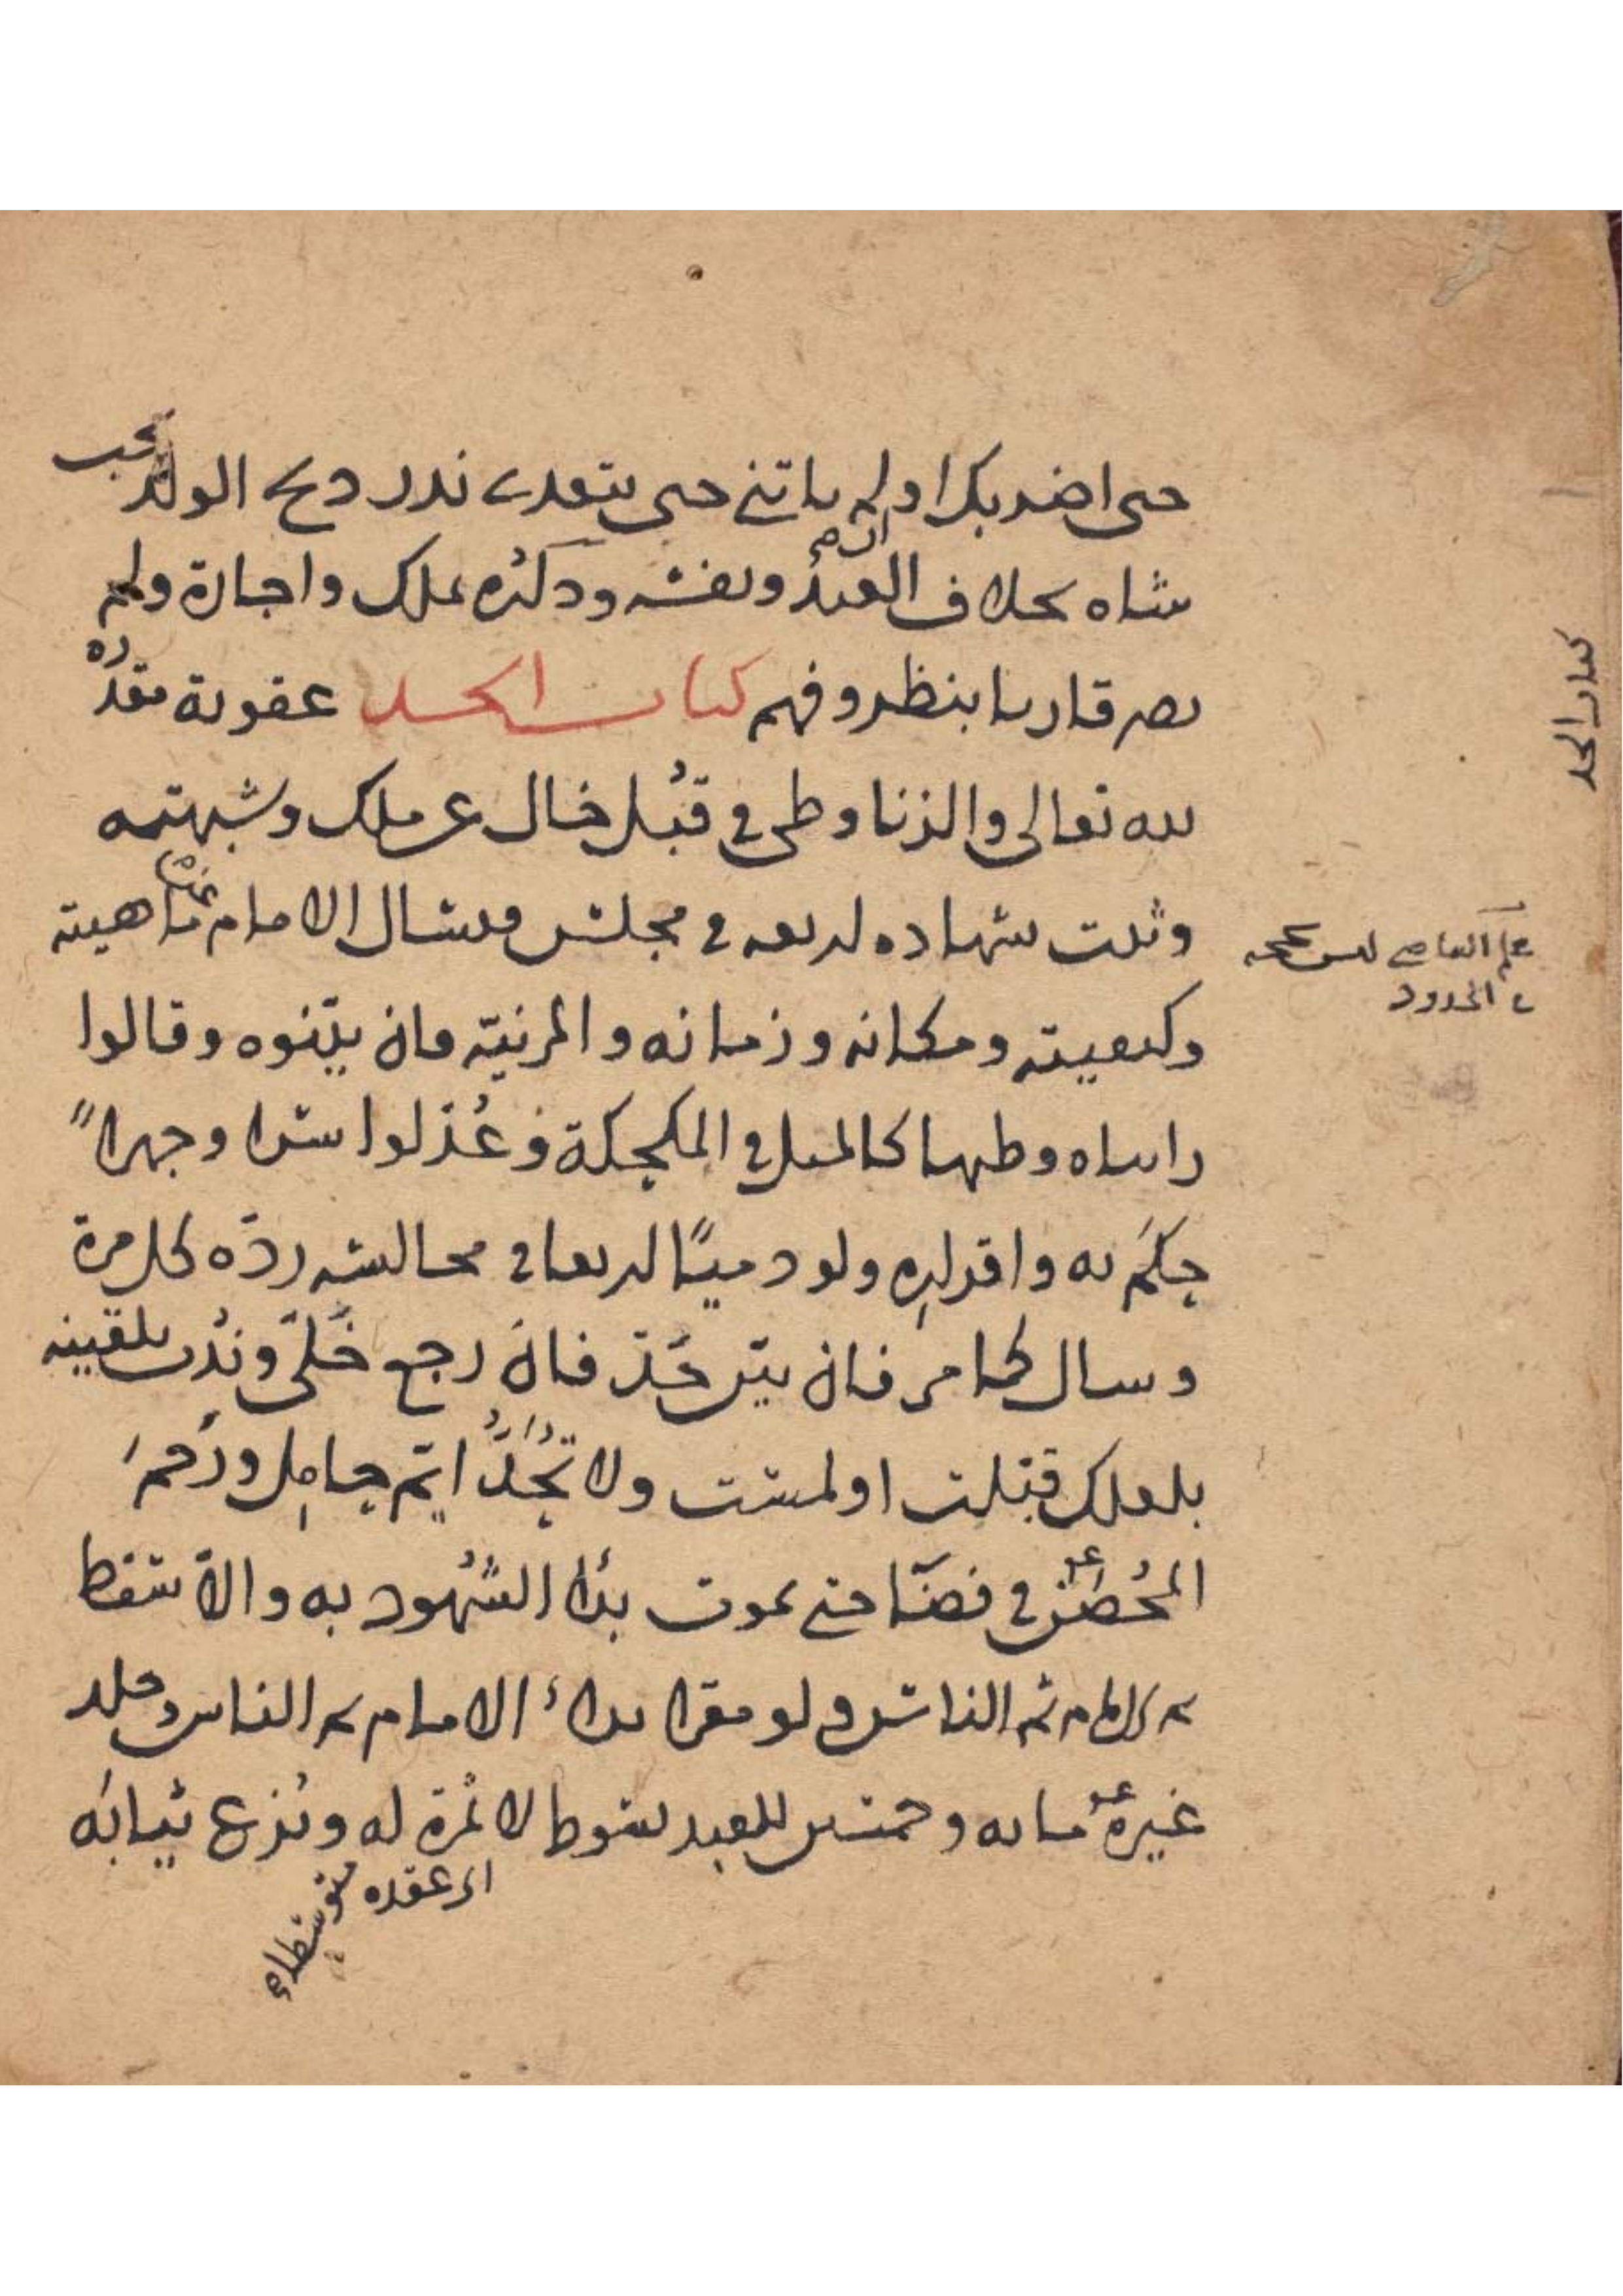 حتى اضربك او لم ياتني حتى يتغدى نذر ذبح الولد يجب
شاه بخلاف العبد ونفسه وذكره بملك واجارة ولم
يصر قاريا بنظر وفهم كتاب الحد عقوبة مقدرة
لله تعالى والزنا وطى في قبل خال عن ملك وشبهته
وثبت بشهاده اربعه في مجلس فيسال الامام عن ماهيته
وكيفيته ومكانه وزمانه والمزنية فان بينوه وقالوا
رايناه وطيها كالميل في المكحلة وعدلوا سرا وجهرا
حكم به واقراره ولو ذميا اربعا في مجالسه رده كل مرة
وسال كما مر فان بين حد فان رجع خلى وندب تلقينه
بلعلك قبلت او لمست ولا تحد ايم حامل ورحم
المحصن في فضا حتى يموت بدا الشهود به والا سقط
ثم الامام ثم الناس ولو مقرا بداء الامام ثم الناس وجلد
غيره مايه وخمسين للعبد بسوط لا ثمرة له ونزع ثيابه
اى عقده
متوسطا
كتاب الحد
علم القاضي ليس بحجه
في الحدود